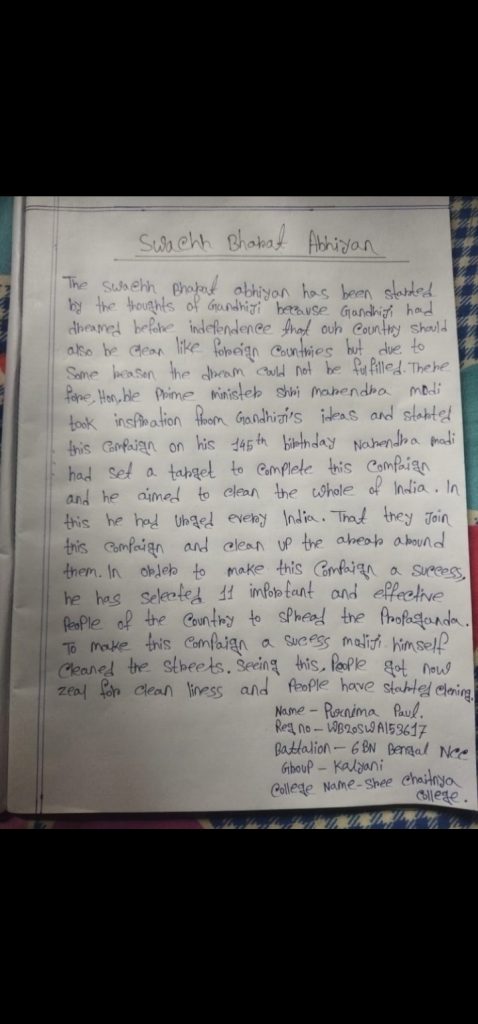 Swachh Bharat Abhiyan
The Swachh Bharat abhiyan has been started
by the thoughts of Gandhiji because Gandhiji had
dreamed before independence that our Country should
also be clean like foreign countries but due to
Some reason the dream could not be fulfilled. There
fore, Hon,ble Prime minister shri marendra modi
took inspiration from Gandhiji's ideas and started
this Compaign on his 145th birthday Narendra modi
had set a target to Complete this Compaign
and he aimed to clean the whole of India. In
this he had urged every India. That they Join
this compaign and clean up the arear around
them. In order to make this Compaign a success,
he has selected 11 important and effective
People of the Country to spread the Propaganda.
To make this compaign a sucess modiji himself
Cleaned the streets. Seeing this, People got now
zeal for clean liness and People have started clening.
Name - Purnima Paul.
Reg no - WB20SWA153617
Battalion - 6 BN Bengal Ncc
Group - Kalyani
College Name - Shee Chaitnya
College.